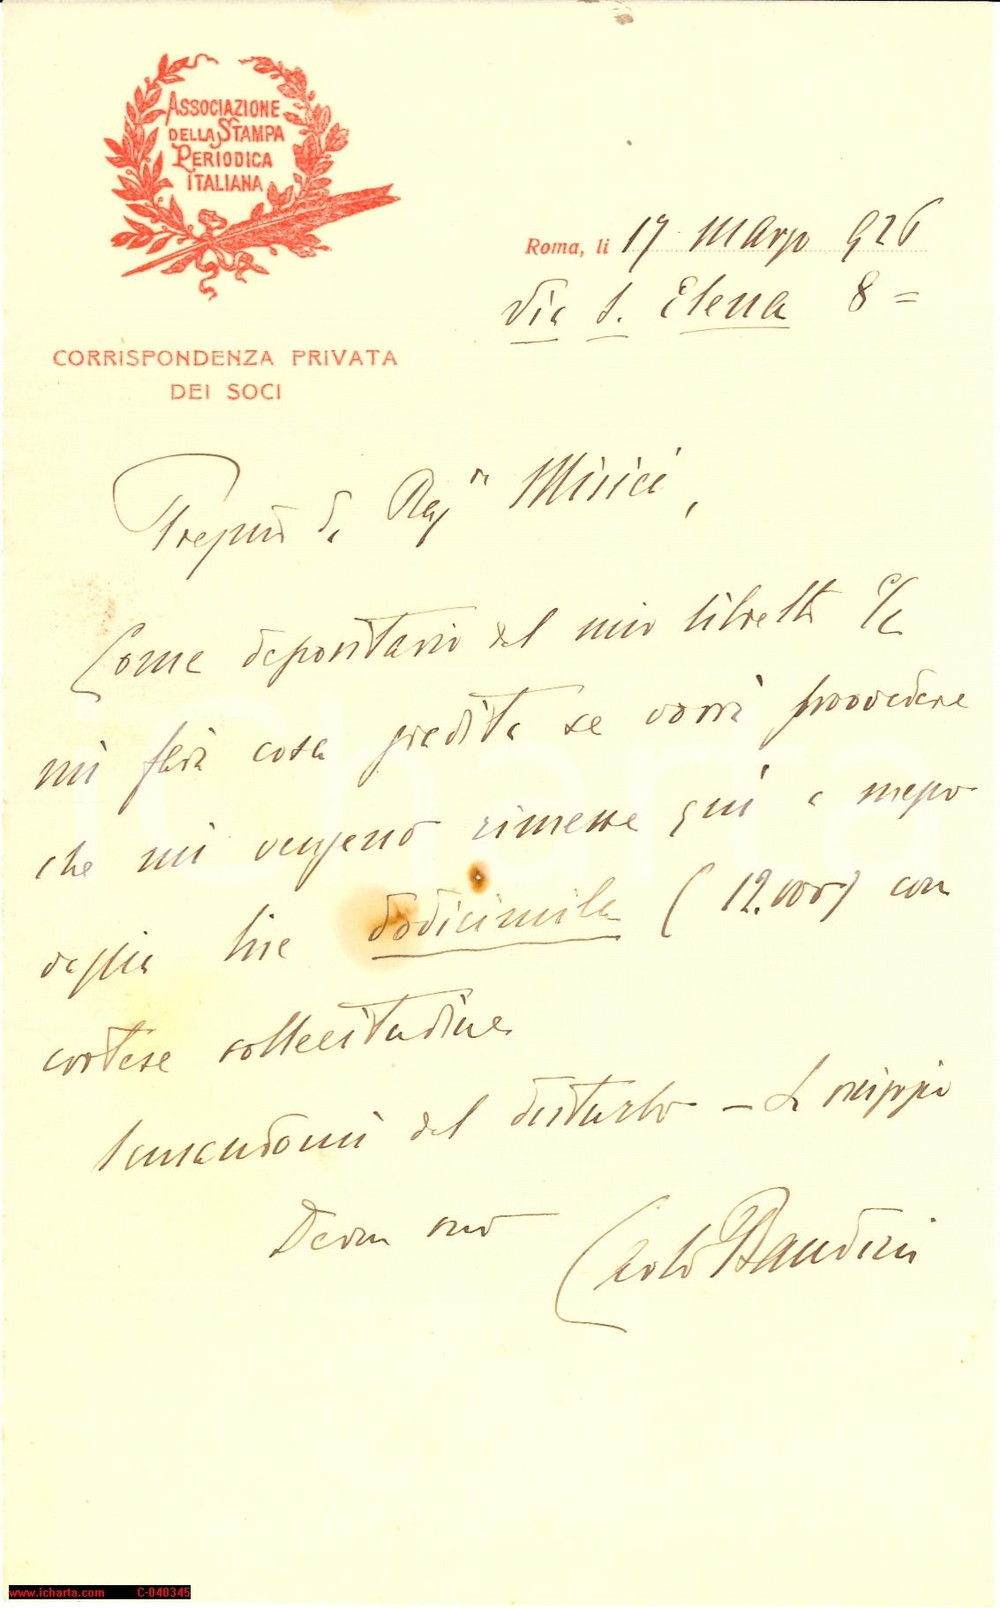 ASSOCIAZIONE
DELLA STAMPA
PERIODICA
ITALIANA
CORRISPONDENZA PRIVATA
DEI SOCI
Roma, li 17 Marzo 926
Via S. Elena 8 =
Pregmo Sr Ragre Misici,
Come depositario del mio libretto C/c
mi farà cosa gradita se vorrà provvedere
che mi vengano rimesse qui a mezzo
vaglia lire dodicimila (12.000) con
cortese sollecitudine
Scusandomi del disturbo – La
Devmo suo Carlo Bandini
www.icharta.com C-040345